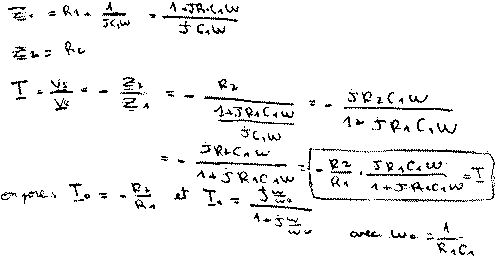 Z₁ = R₁ + 1/(jC₁ω) = (1+jR₁C₁ω)/(jC₁ω)
Z₂ = R₂
T = Vs/Ve = - Z₂/Z₁ = - R₂/((1+jR₁C₁ω)/(jC₁ω)) = - (jR₂C₁ω)/(1+jR₁C₁ω)
= - (jR₂C₁ω)/(1+jR₁C₁ω) = - R₂/R₁ · (jR₁C₁ω)/(1+jR₁C₁ω) = T
on pose : T₀ = - R₂/R₁ et T₁ = (j ω/ω₀)/(1+j ω/ω₀)
avec ω₀ = 1/(R₁C₁)